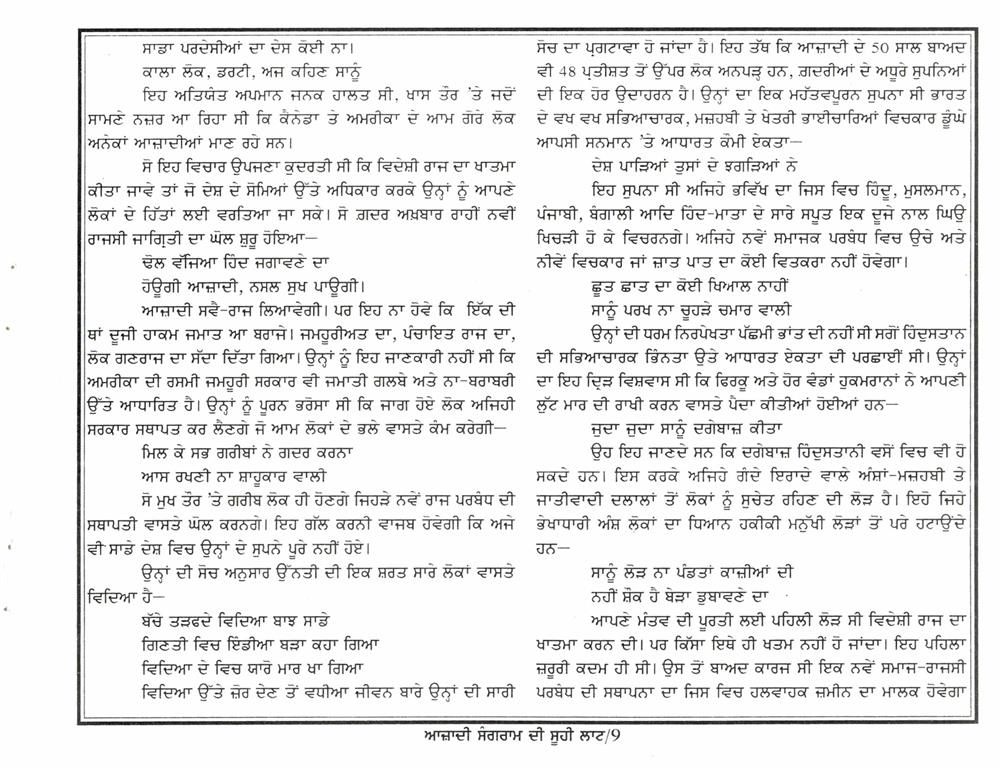 ਸਾਡਾ ਪਰਦੇਸੀਆਂ ਦਾ ਦੇਸ ਕੋਈ ਨਾ।
ਕਾਲਾ ਲੋਕ, ਡਰਟੀ, ਅਜ ਕਹਿਣ ਸਾਨੂੰ
ਇਹ ਅਤਿਯੰਤ ਅਪਮਾਨ ਜਨਕ ਹਾਲਤ ਸੀ, ਖਾਸ ਤੌਰ 'ਤੇ ਜਦੋਂ
ਸਾਮਣੇ ਨਜ਼ਰ ਆ ਰਿਹਾ ਸੀ ਕਿ ਕੈਨੇਡਾ ਤੇ ਅਮਰੀਕਾ ਦੇ ਆਮ ਗੋਰੇ ਲੋਕ
ਅਨੇਕਾਂ ਆਜ਼ਾਦੀਆਂ ਮਾਣ ਰਹੇ ਸਨ।
ਸੋ ਇਹ ਵਿਚਾਰ ਉਪਜਣਾ ਕੁਦਰਤੀ ਸੀ ਕਿ ਵਿਦੇਸ਼ੀ ਰਾਜ ਦਾ ਖਾਤਮਾ
ਕੀਤਾ ਜਾਵੇ ਤਾਂ ਜੋ ਦੇਸ਼ ਦੇ ਸੋਮਿਆਂ ਉੱਤੇ ਅਧਿਕਾਰ ਕਰਕੇ ਉਨ੍ਹਾਂ ਨੂੰ ਆਪਣੇ
ਲੋਕਾਂ ਦੇ ਹਿੱਤਾਂ ਲਈ ਵਰਤਿਆ ਜਾ ਸਕੇ। ਸੋ ਗ਼ਦਰ ਅਖ਼ਬਾਰ ਰਾਹੀਂ ਨਵੀਂ
ਰਾਜਸੀ ਜਾਗ੍ਰਿਤੀ ਦਾ ਘੋਲ ਸ਼ੁਰੂ ਹੋਇਆ—
ਢੋਲ ਵੱਜਿਆ ਹਿੰਦ ਜਗਾਵਣੇ ਦਾ
ਹੋਊਗੀ ਆਜ਼ਾਦੀ, ਨਸਲ ਸੁਖ ਪਾਊਗੀ।
ਆਜ਼ਾਦੀ ਸਵੈ-ਰਾਜ ਲਿਆਵੇਗੀ। ਪਰ ਇਹ ਨਾ ਹੋਵੇ ਕਿ ਇੱਕ ਦੀ
ਥਾਂ ਦੂਜੀ ਹਾਕਮ ਜਮਾਤ ਆ ਬਰਾਜੇ। ਜਮਹੂਰੀਅਤ ਦਾ, ਪੰਚਾਇਤ ਰਾਜ ਦਾ,
ਲੋਕ ਗਣਰਾਜ ਦਾ ਸੱਦਾ ਦਿੱਤਾ ਗਿਆ। ਉਨ੍ਹਾਂ ਨੂੰ ਇਹ ਜਾਣਕਾਰੀ ਨਹੀਂ ਸੀ ਕਿ
ਅਮਰੀਕਾ ਦੀ ਰਸਮੀ ਜਮਹੂਰੀ ਸਰਕਾਰ ਵੀ ਜਮਾਤੀ ਗਲਬੇ ਅਤੇ ਨਾ-ਬਰਾਬਰੀ
ਉੱਤੇ ਆਧਾਰਿਤ ਹੈ। ਉਨ੍ਹਾਂ ਨੂੰ ਪੂਰਨ ਭਰੋਸਾ ਸੀ ਕਿ ਜਾਗ ਹੋਏ ਲੋਕ ਅਜਿਹੀ
ਸਰਕਾਰ ਸਥਾਪਤ ਕਰ ਲੈਣਗੇ ਜੋ ਆਮ ਲੋਕਾਂ ਦੇ ਭਲੇ ਵਾਸਤੇ ਕੰਮ ਕਰੇਗੀ—
ਮਿਲ ਕੇ ਸਭ ਗਰੀਬਾਂ ਨੇ ਗਦਰ ਕਰਨਾ
ਆਸ ਰਖਣੀ ਨਾ ਸ਼ਾਹੂਕਾਰ ਵਾਲੀ
ਸੋ ਮੁਖ ਤੌਰ 'ਤੇ ਗਰੀਬ ਲੋਕ ਹੀ ਹੋਣਗੇ ਜਿਹੜੇ ਨਵੇਂ ਰਾਜ ਪਰਬੰਧ ਦੀ
ਸਥਾਪਤੀ ਵਾਸਤੇ ਘੋਲ ਕਰਨਗੇ। ਇਹ ਗੱਲ ਕਰਨੀ ਵਾਜਬ ਹੋਵੇਗੀ ਕਿ ਅਜੇ
ਵੀ ਸਾਡੇ ਦੇਸ਼ ਵਿਚ ਉਨ੍ਹਾਂ ਦੇ ਸੁਪਨੇ ਪੂਰੇ ਨਹੀਂ ਹੋਏ।
ਉਨ੍ਹਾਂ ਦੀ ਸੋਚ ਅਨੁਸਾਰ ਉੱਨਤੀ ਦੀ ਇਕ ਸ਼ਰਤ ਸਾਰੇ ਲੋਕਾਂ ਵਾਸਤੇ
ਵਿਦਿਆ ਹੈ—
ਬੱਚੇ ਤੜਫਦੇ ਵਿਦਿਆ ਬਾਝ ਸਾਡੇ
ਗਿਣਤੀ ਵਿਚ ਇੰਡੀਆ ਬੜਾ ਕਹਾ ਗਿਆ
ਵਿਦਿਆ ਦੇ ਵਿਚ ਯਾਰੋ ਮਾਰ ਖਾ ਗਿਆ
ਵਿਦਿਆ ਉੱਤੇ ਜ਼ੋਰ ਦੇਣ ਤੋਂ ਵਧੀਆ ਜੀਵਨ ਬਾਰੇ ਉਨ੍ਹਾਂ ਦੀ ਸਾਰੀ
ਸੋਚ ਦਾ ਪ੍ਰਗਟਾਵਾ ਹੋ ਜਾਂਦਾ ਹੈ। ਇਹ ਤੱਥ ਕਿ ਆਜ਼ਾਦੀ ਦੇ 50 ਸਾਲ ਬਾਅਦ
ਵੀ 48 ਪ੍ਰਤੀਸ਼ਤ ਤੋਂ ਉੱਪਰ ਲੋਕ ਅਨਪੜ੍ਹ ਹਨ, ਗ਼ਦਰੀਆਂ ਦੇ ਅਧੂਰੇ ਸੁਪਨਿਆਂ
ਦੀ ਇਕ ਹੋਰ ਉਦਾਹਰਨ ਹੈ। ਉਨ੍ਹਾਂ ਦਾ ਇਕ ਮਹੱਤਵਪੂਰਨ ਸੁਪਨਾ ਸੀ ਭਾਰਤ
ਦੇ ਵਖ ਵਖ ਸਭਿਆਚਾਰਕ, ਮਜ਼ਹਬੀ ਤੇ ਖੇਤਰੀ ਭਾਈਚਾਰਿਆਂ ਵਿਚਕਾਰ ਡੂੰਘੇ
ਆਪਸੀ ਸਨਮਾਨ 'ਤੇ ਆਧਾਰਤ ਕੌਮੀ ਏਕਤਾ—
ਦੇਸ਼ ਪਾੜਿਆਂ ਤੁਸਾਂ ਦੇ ਝਗੜਿਆਂ ਨੇ
ਇਹ ਸੁਪਨਾ ਸੀ ਅਜਿਹੇ ਭਵਿੱਖ ਦਾ ਜਿਸ ਵਿਚ ਹਿੰਦੂ, ਮੁਸਲਮਾਨ,
ਪੰਜਾਬੀ, ਬੰਗਾਲੀ ਆਦਿ ਹਿੰਦ-ਮਾਤਾ ਦੇ ਸਾਰੇ ਸਪੂਤ ਇਕ ਦੂਜੇ ਨਾਲ ਘਿਉ
ਖਿਚੜੀ ਹੋ ਕੇ ਵਿਚਰਨਗੇ। ਅਜਿਹੇ ਨਵੇਂ ਸਮਾਜਕ ਪਰਬੰਧ ਵਿਚ ਉਚੇ ਅਤੇ
ਨੀਵੇਂ ਵਿਚਕਾਰ ਜਾਂ ਜ਼ਾਤ ਪਾਤ ਦਾ ਕੋਈ ਵਿਤਕਰਾ ਨਹੀਂ ਹੋਵੇਗਾ।
ਛੂਤ ਛਾਤ ਦਾ ਕੋਈ ਖਿਆਲ ਨਾਹੀਂ
ਸਾਨੂੰ ਪਰਖ ਨਾ ਚੂਹੜੇ ਚਮਾਰ ਵਾਲੀ
ਉਨ੍ਹਾਂ ਦੀ ਧਰਮ ਨਿਰਪੇਖਤਾ ਪੱਛਮੀ ਭਾਂਤ ਦੀ ਨਹੀਂ ਸੀ ਸਗੋਂ ਹਿੰਦੁਸਤਾਨ
ਦੀ ਸਭਿਆਚਾਰਕ ਭਿੰਨਤਾ ਉਤੇ ਆਧਾਰਤ ਏਕਤਾ ਦੀ ਪਰਛਾਈਂ ਸੀ। ਉਨ੍ਹਾਂ
ਦਾ ਇਹ ਦ੍ਰਿੜ ਵਿਸ਼ਵਾਸ ਸੀ ਕਿ ਫਿਰਕੂ ਅਤੇ ਹੋਰ ਵੰਡਾਂ ਹੁਕਮਰਾਨਾਂ ਨੇ ਆਪਣੀ
ਲੁੱਟ ਮਾਰ ਦੀ ਰਾਖੀ ਕਰਨ ਵਾਸਤੇ ਪੈਦਾ ਕੀਤੀਆਂ ਹੋਈਆਂ ਹਨ—
ਜੁਦਾ ਜੁਦਾ ਸਾਨੂੰ ਦਗੇਬਾਜ਼ ਕੀਤਾ
ਉਹ ਇਹ ਜਾਣਦੇ ਸਨ ਕਿ ਦਗੇਬਾਜ਼ ਹਿੰਦੁਸਤਾਨੀ ਵਸੋਂ ਵਿਚ ਵੀ ਹੋ
ਸਕਦੇ ਹਨ। ਇਸ ਕਰਕੇ ਅਜਿਹੇ ਗੰਦੇ ਇਰਾਦੇ ਵਾਲੇ ਅੰਸ਼ਾਂ-ਮਜ਼ਹਬੀ ਤੇ
ਜਾਤੀਵਾਦੀ ਦਲਾਲਾਂ ਤੋਂ ਲੋਕਾਂ ਨੂੰ ਸੁਚੇਤ ਰਹਿਣ ਦੀ ਲੋੜ ਹੈ। ਇਹੋ ਜਿਹੇ
ਭੇਖਾਧਾਰੀ ਅੰਸ਼ ਲੋਕਾਂ ਦਾ ਧਿਆਨ ਹਕੀਕੀ ਮਨੁੱਖੀ ਲੋੜਾਂ ਤੋਂ ਪਰੇ ਹਟਾਉਂਦੇ
ਹਨ—
ਸਾਨੂੰ ਲੋੜ ਨਾ ਪੰਡਤਾਂ ਕਾਜ਼ੀਆਂ ਦੀ
ਨਹੀਂ ਸ਼ੌਕ ਹੈ ਬੇੜਾ ਡੁਬਾਵਣੇ ਦਾ
ਆਪਣੇ ਮੰਤਵ ਦੀ ਪੂਰਤੀ ਲਈ ਪਹਿਲੀ ਲੋੜ ਸੀ ਵਿਦੇਸ਼ੀ ਰਾਜ ਦਾ
ਖਾਤਮਾ ਕਰਨ ਦੀ। ਪਰ ਕਿੱਸਾ ਇਥੇ ਹੀ ਖਤਮ ਨਹੀਂ ਹੋ ਜਾਂਦਾ। ਇਹ ਪਹਿਲਾ
ਜ਼ਰੂਰੀ ਕਦਮ ਹੀ ਸੀ। ਉਸ ਤੋਂ ਬਾਅਦ ਕਾਰਜ ਸੀ ਇਕ ਨਵੇਂ ਸਮਾਜ-ਰਾਜਸੀ
ਪਰਬੰਧ ਦੀ ਸਥਾਪਨਾ ਦਾ ਜਿਸ ਵਿਚ ਹਲਵਾਹਕ ਜ਼ਮੀਨ ਦਾ ਮਾਲਕ ਹੋਵੇਗਾ
ਆਜ਼ਾਦੀ ਸੰਗਰਾਮ ਦੀ ਸੂਹੀ ਲਾਟ/9